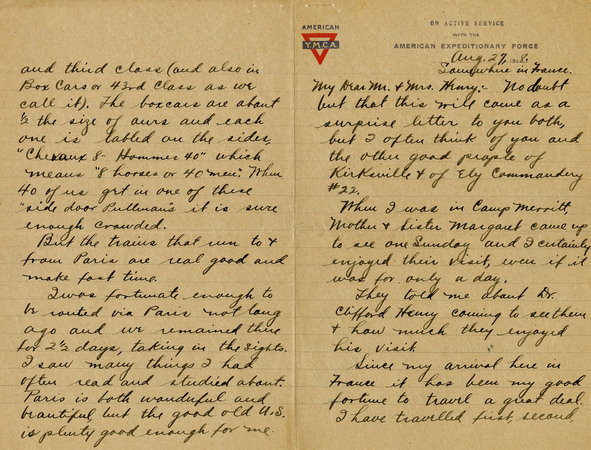 AMERICAN
Y.M.C.A.
ON ACTIVE SERVICE
WITH THE
AMERICAN EXPEDITIONARY FORCE
Aug. 27, 1918.
Somewhere in France.
My Dear Mr. & Mrs. Henry:- No doubt
but that this will come as a
surprise letter to you both,
but I often think of you and
the other good people of
Kirksville & of Ely Commandery
#22.
When I was in Camp Merritt,
Mother & Sister Margaret came up
to see one Sunday and I certainly
enjoyed their visit, even if it
was for only a day.
They told me about Dr.
Clifford Henry coming to see them
& how much they enjoyed
his visit.
Since my arrival here in
France it has been my good
fortune to travel a great deal.
I have travelled first, second
and third class (and also in
Box Cars or 43rd Class as we
call it). The boxcars are about
½ the size of ours and each
one is labled on the sides,
"Chevaux 8 - Hommes 40" which
means "8 horses or 40 men". When
40 of us get in one of these
"side door Pullman's" it is sure
enough crowded.
But the trains that run to &
from Paris are real good and
make fast time.
I was fortunate enough to
be routed via Paris not long
ago and we remained there
for 2½ days, taking in the sights.
I saw many things I had
often read and studied about.
Paris is both wonderful and
beautiful but the good old U.S.
is plenty good enough for me.